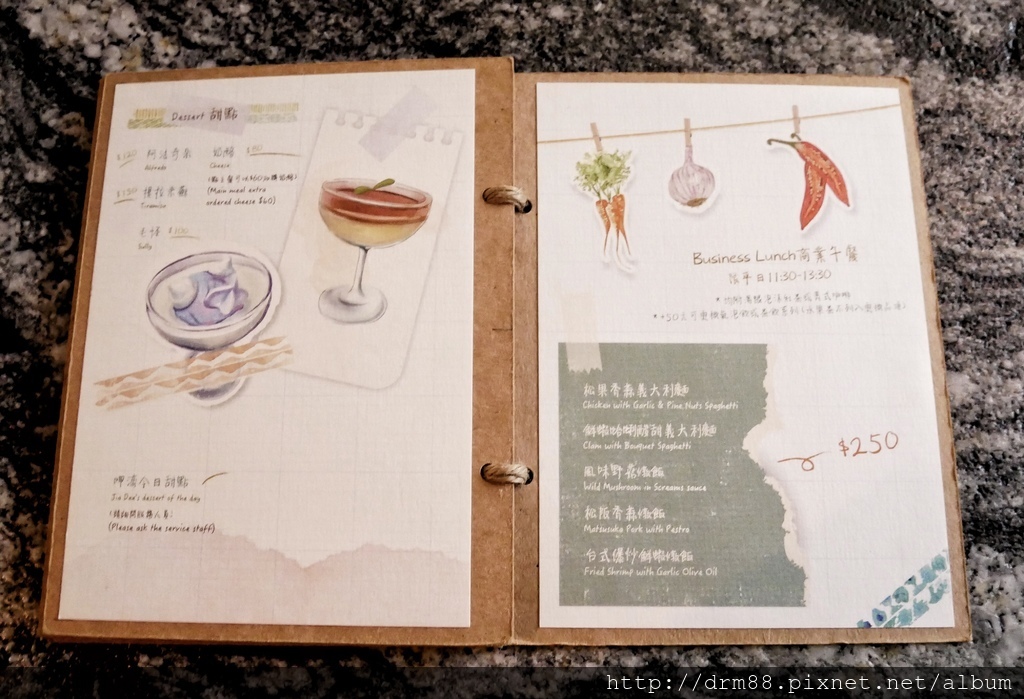 Dessert 甜點
$120 阿法奇朵
Affogado
$150 提拉米蘇
Tiramisu
毛語 $100
Salty
起司 $60
Cheese
(Main meal extra
ordered cheese $60)
呷濤今日甜點
Jia Dao's dessert of the day
(請詢問服務人員)
(Please ask the service staff)
Business Lunch 商業午餐
限平日11:30-13:30
松果青蒜義大利麵
Chicken with Garlic & Pine Nuts Spaghetti
鮮蝦蛤蜊醋甜義大利麵
Clam with Bouquet Spaghetti
風味野菇燉飯
Wild Mushroom in Screams sauce
松阪青蒜燉飯
Matsusuka Pork with Pestro
台式優紗鮮蝦燉飯
Fried Shrimp with Garlic Olive Oil
$250
http://drm88.pixnet.net/album